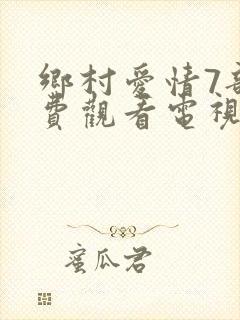 鄉村愛情7
費觀看電視
蜜瓜君